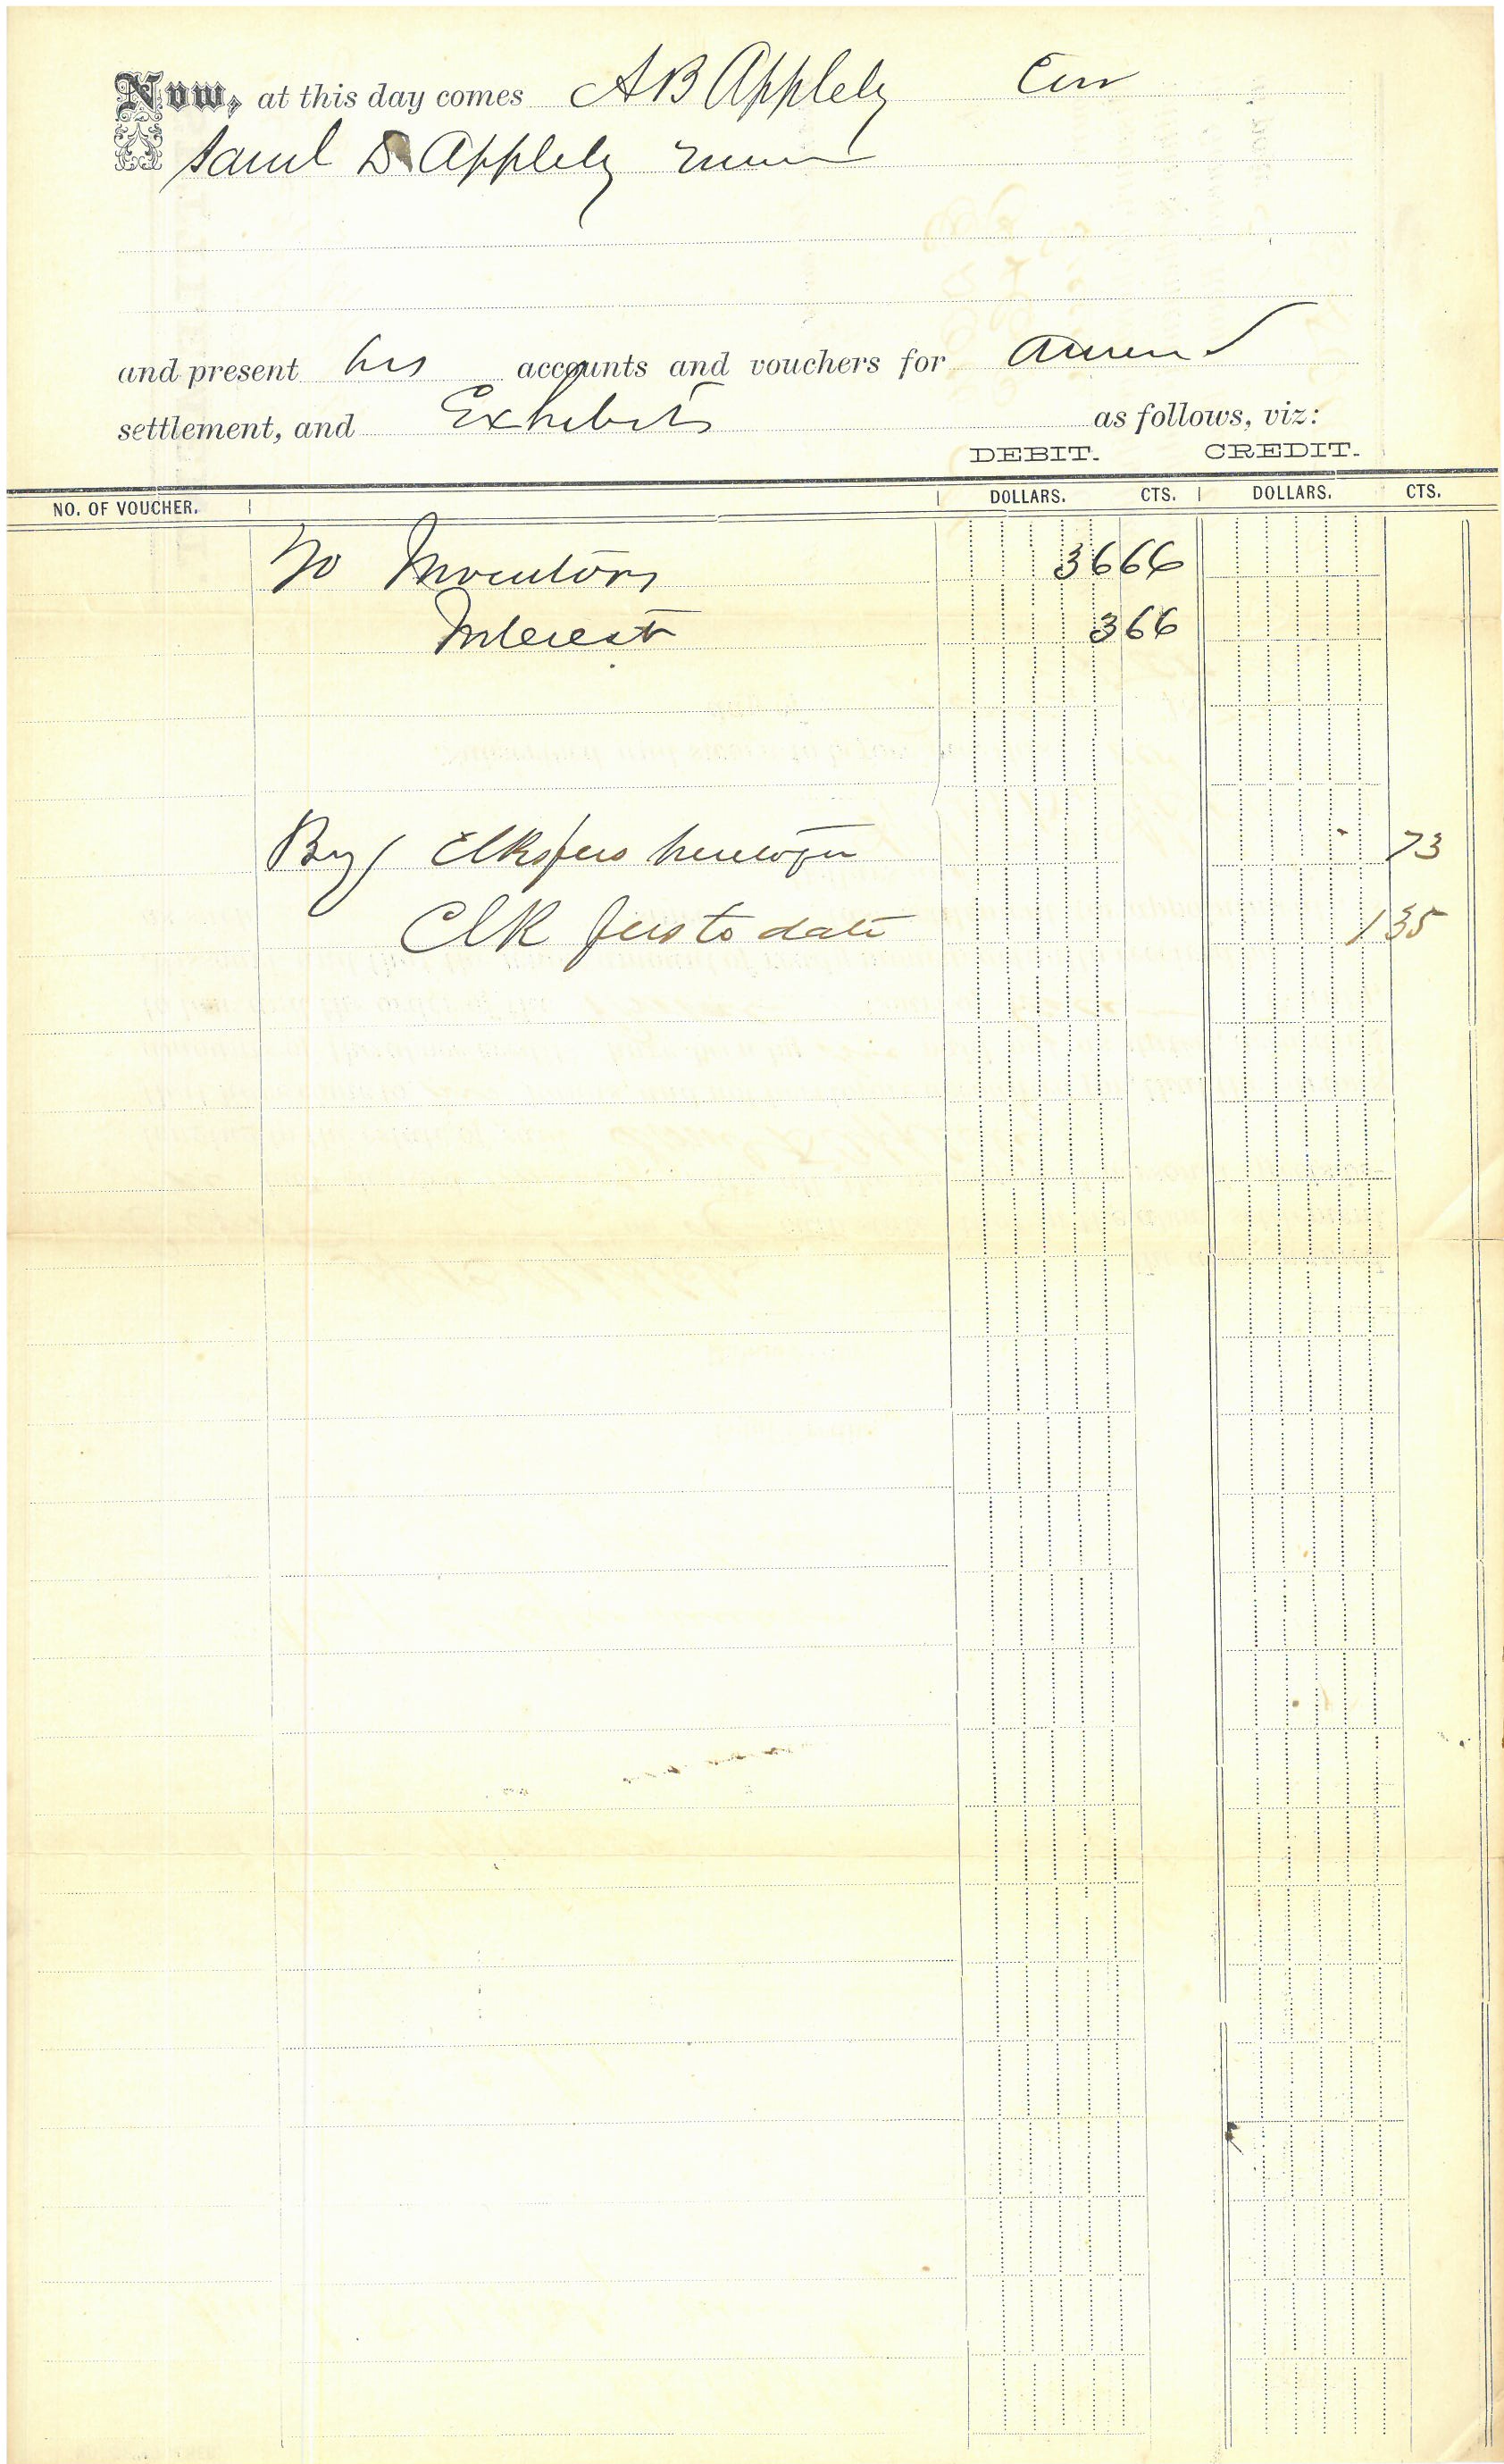 Now, at this day comes A B Appleby Cur
Saml D Appleby minor
and present his accounts and vouchers for annual
settlement, and Exhibits as follows, viz:
DEBIT. CREDIT.
NO. OF VOUCHER. DOLLARS. CTS. DOLLARS. CTS.
To Inventory 36 66
Interest 3 66
By Clks fees heretofor 73
Clk fees to date 1 35